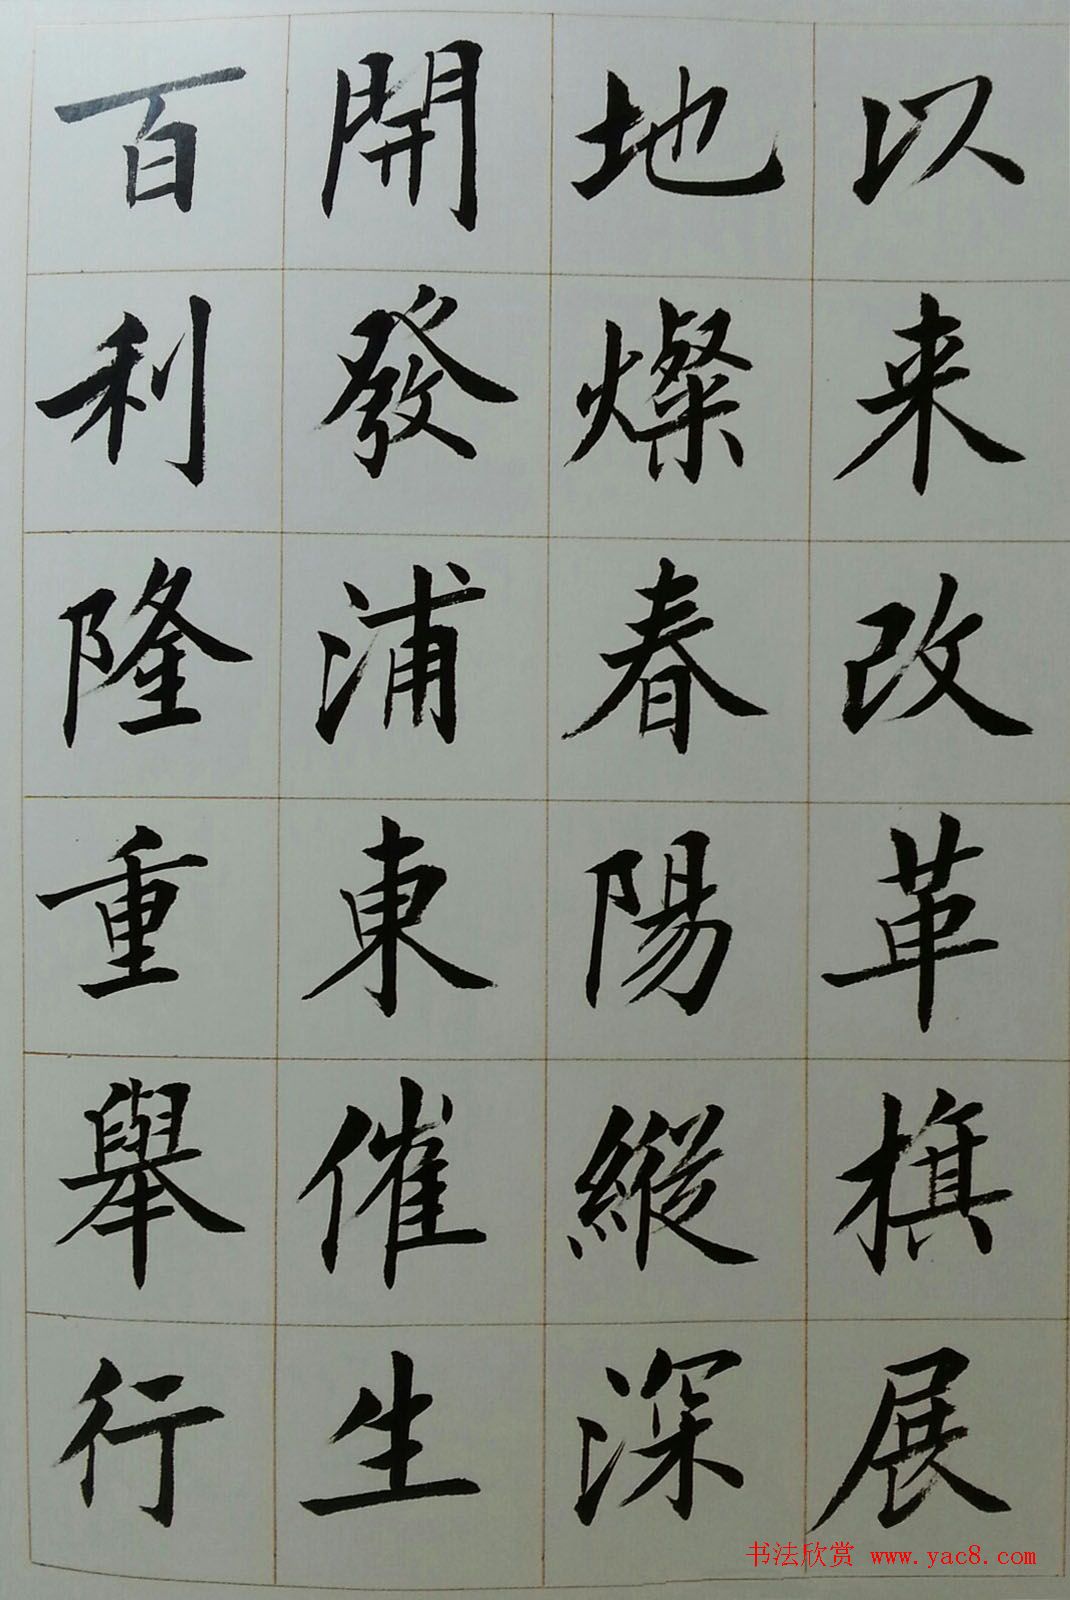 以来改革旗展
地燦春陽縱深
開發浦東催生
百利隆重舉行
书法欣赏 www.yac8.com